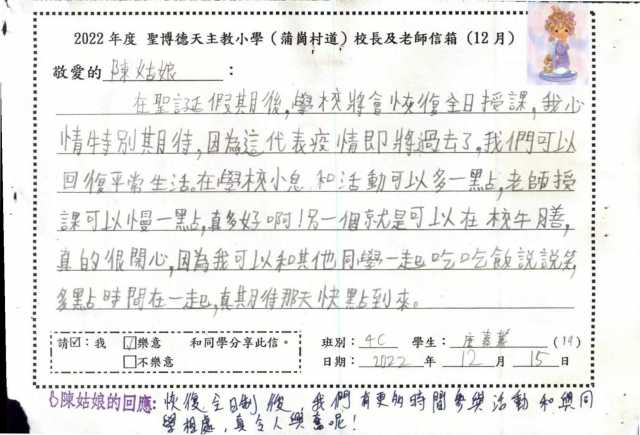 2022 年度 聖博德天主教小學（蒲崗村道）校長及老師信箱（12 月）
敬愛的 陳姑娘 ：
在聖誕假期後，學校將會恢復全日授課，我心
情特別期待，因為這代表疫情即將過去了。我們可以
回復平常生活。在學校小息 和活動可以多一點，老師授
課可以慢一點，真多好啊！另一個就是可以在校午膳，
真的很開心，因為我可以和其他同學一起吃吃飯說說笑，
多點時間在一起，真期待那天快點到來。
請☑：我 ☑樂意 和同學分享此信。 班別： 4C 學生： (14)
□不樂意 日期： 2022 年 12 月 15 日
陳姑娘的回應: 恢復全日制後，我們有更多時間參與活動和與同
學相處，真令人興奮呢！